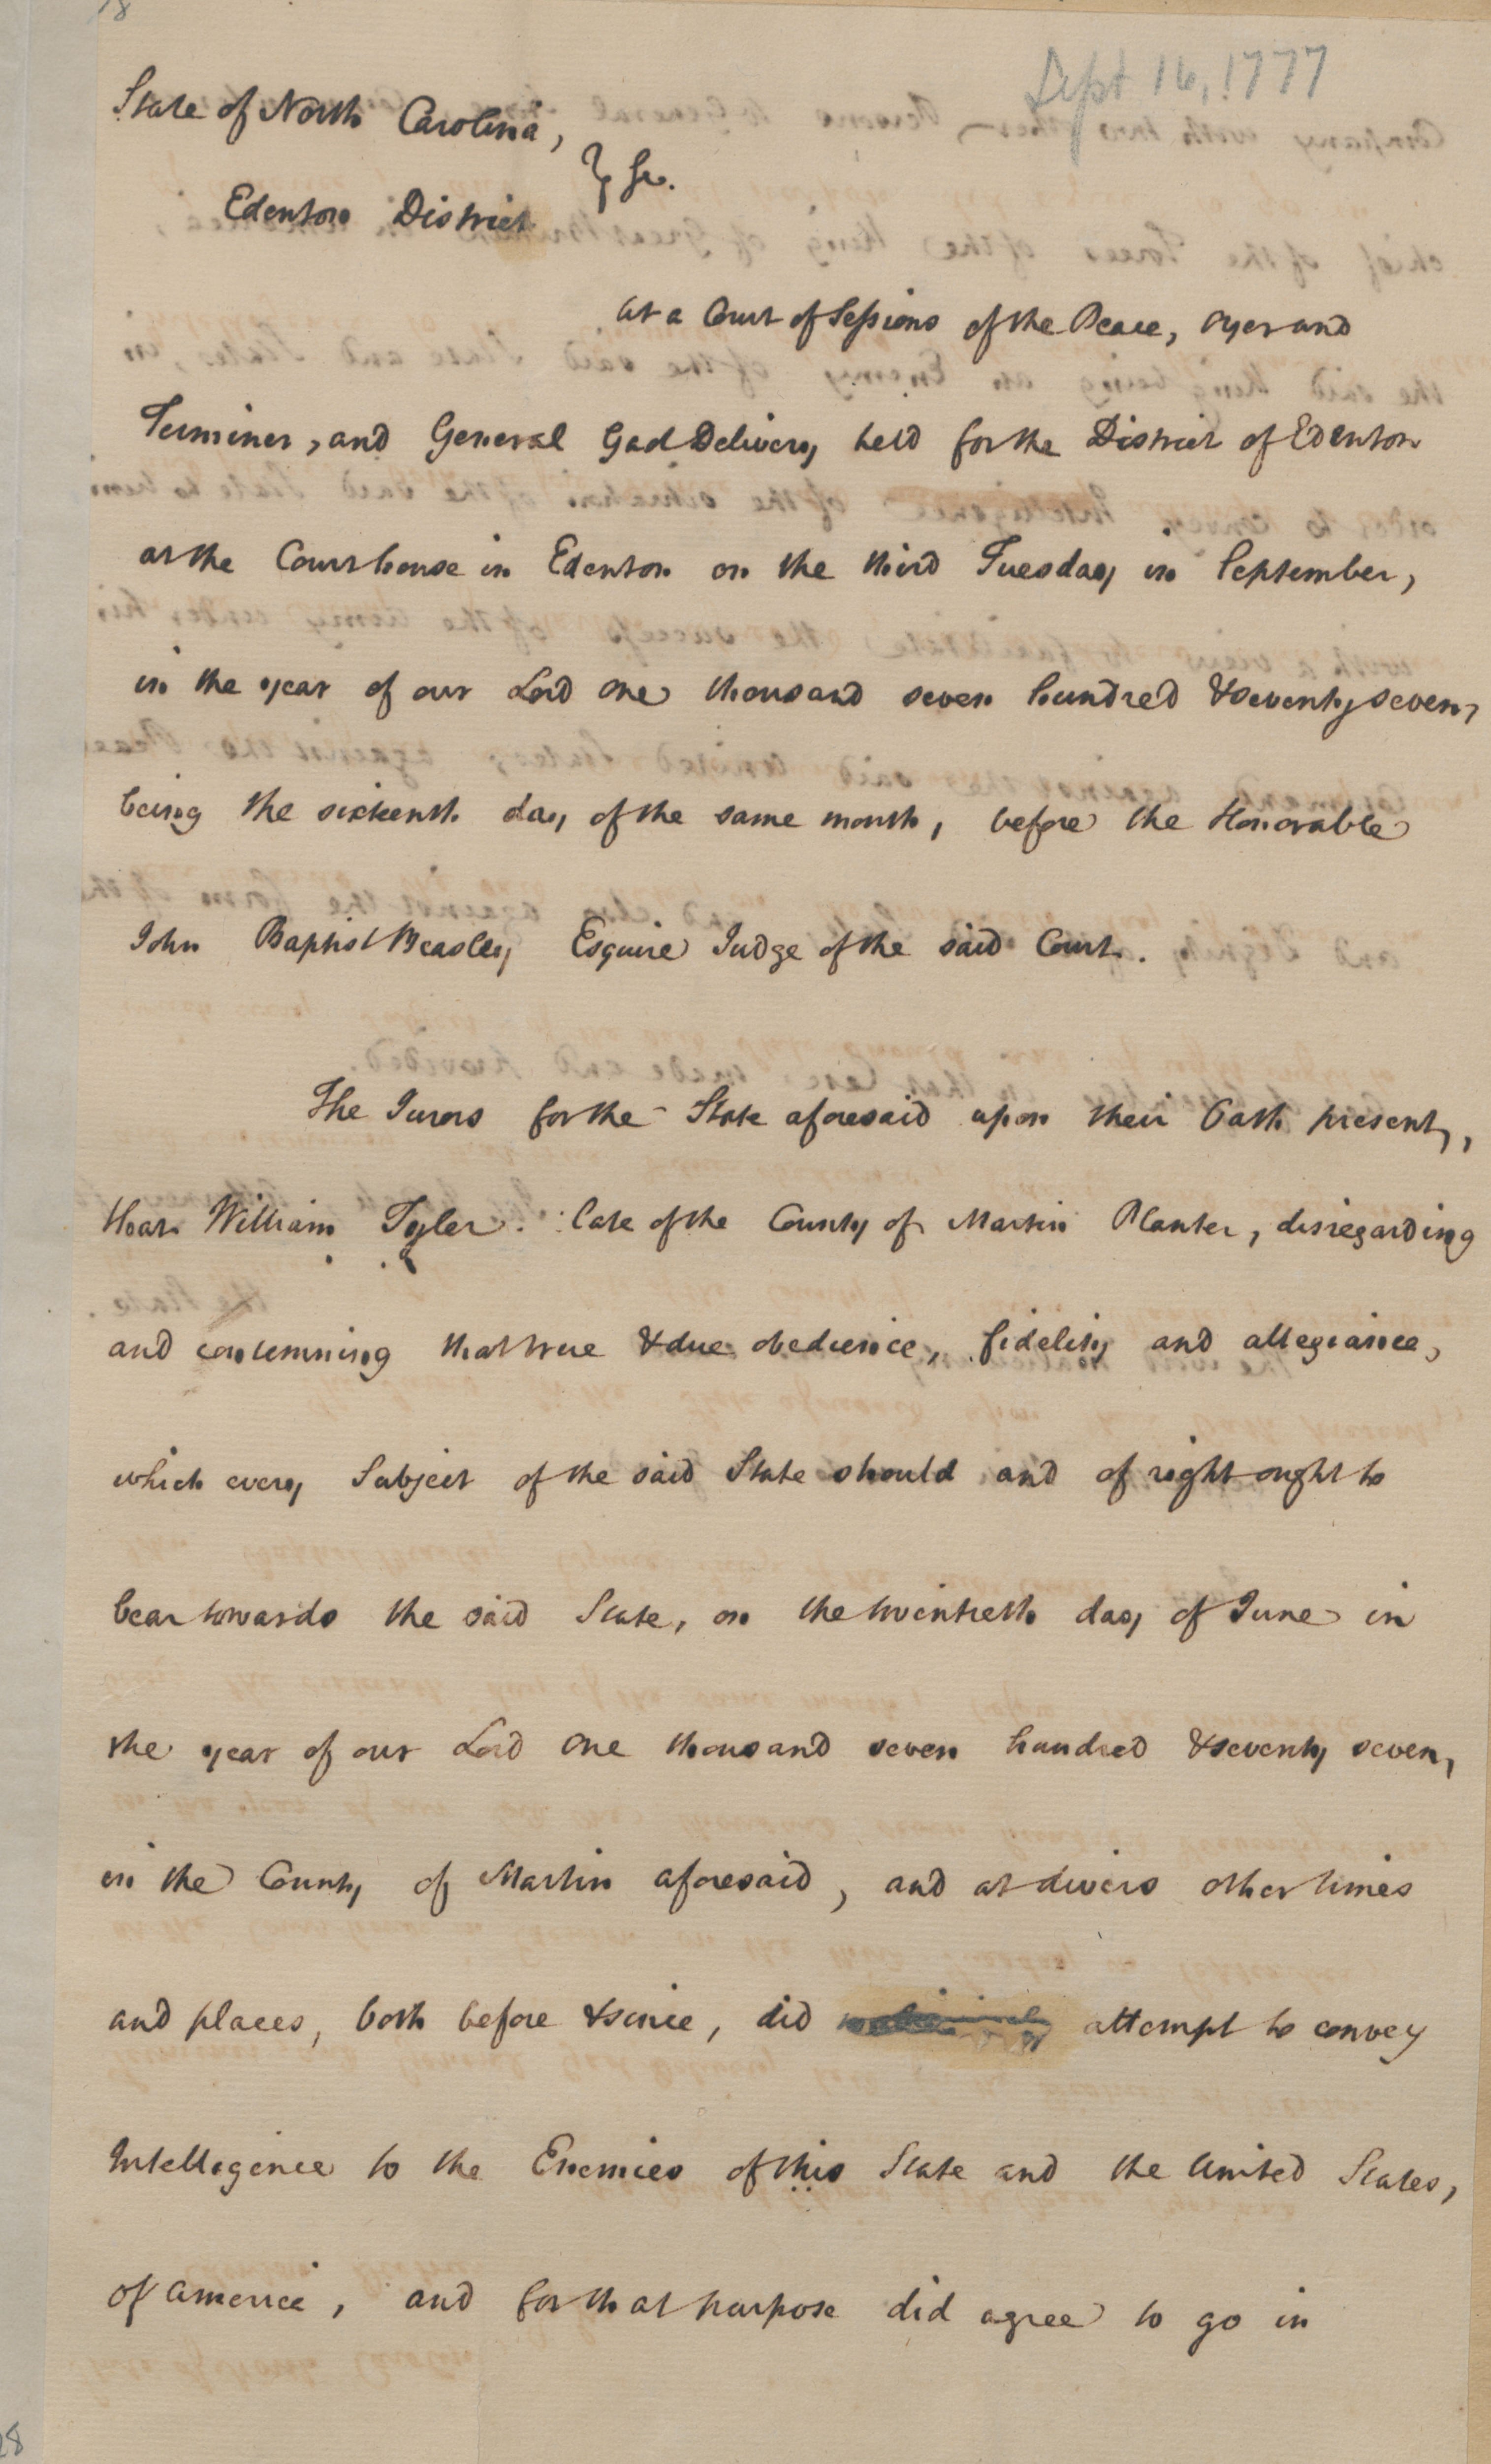 18
Sept 16, 1777
State of North Carolina,
} Sc.
Edenton District
At a Court of Sessions of the Peace, Oyer and
Terminer, and General Gaol Delivery held for the District of Edenton
at the Courthouse in Edenton on the third Tuesday in September,
in the year of our Lord One thousand seven hundred & seventy seven,
being the sixteenth day of the same month, before the Honorable
John Baptist Beasley Esquire Judge of the said Court.
The Jurors for the State aforesaid upon their Oath present,
that William Tyler late of the County of Martin Planter, disregarding
and contemning that true & due obedience, fidelity and allegiance,
which every Subject of the said State should and of right ought to
bear towards the said State, on the twentieth day of June in
the year of our Lord One thousand seven hundred & seventy seven,
in the County of Martin aforesaid, and at divers other times
and places, both before & since, did attempt to convey
Intelligence to the Enemies of this State and the United States,
of America, and for that purpose did agree to go in
28